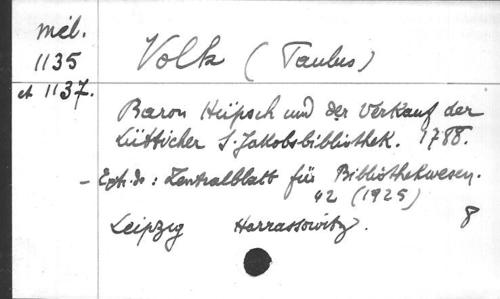 mél.
1135
et 1137.
Volk (Taulus)
Baron Hüpsch und der Verkauf der
Lütticher S. Jakobsbibliothek. 1788.
- Extr. de : Zentralblatt für Bibliothekwesen.
42 (1925)
Leipzig Harrassowitz. 8